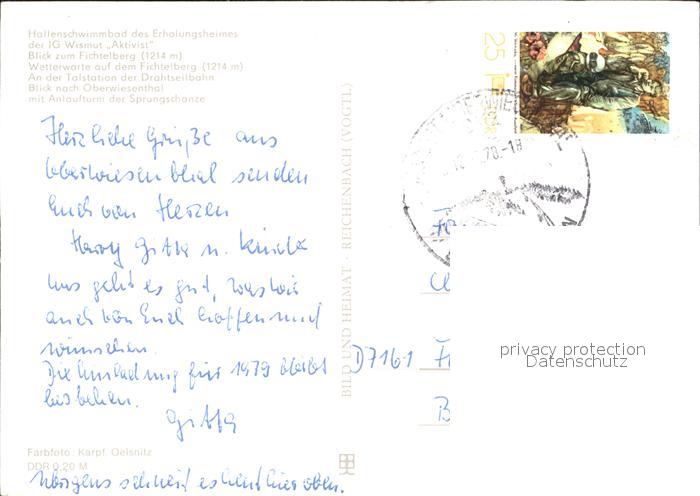 Hallenschwimmbad des Erholungsheimes
der IG Wismut „Aktivist"
Blick zum Fichtelberg (1214 m)
Wetterwarte auf dem Fichtelberg (1214 m)
An der Talstation der Drahtseilbahn
Blick nach Oberwiesenthal
mit Anlaufturm der Sprungschanze
25
78.-18
Herzliche Grüße aus
Oberwiesenthal senden
Euch von Herzen
Gitta u. Kinder
Uns geht es gut, was wir
auch von Euch hoffen und
wünschen.
Die Einladung für 1979 bleibt
bestehen.
Gitta
BILD UND HEIMAT · REICHENBACH (VOGTL)
D7161
privacy protection
Datenschutz
Farbfoto: Karpf, Oelsnitz
DDR 0,20 M
Übrigens schneit es heut hier oben.